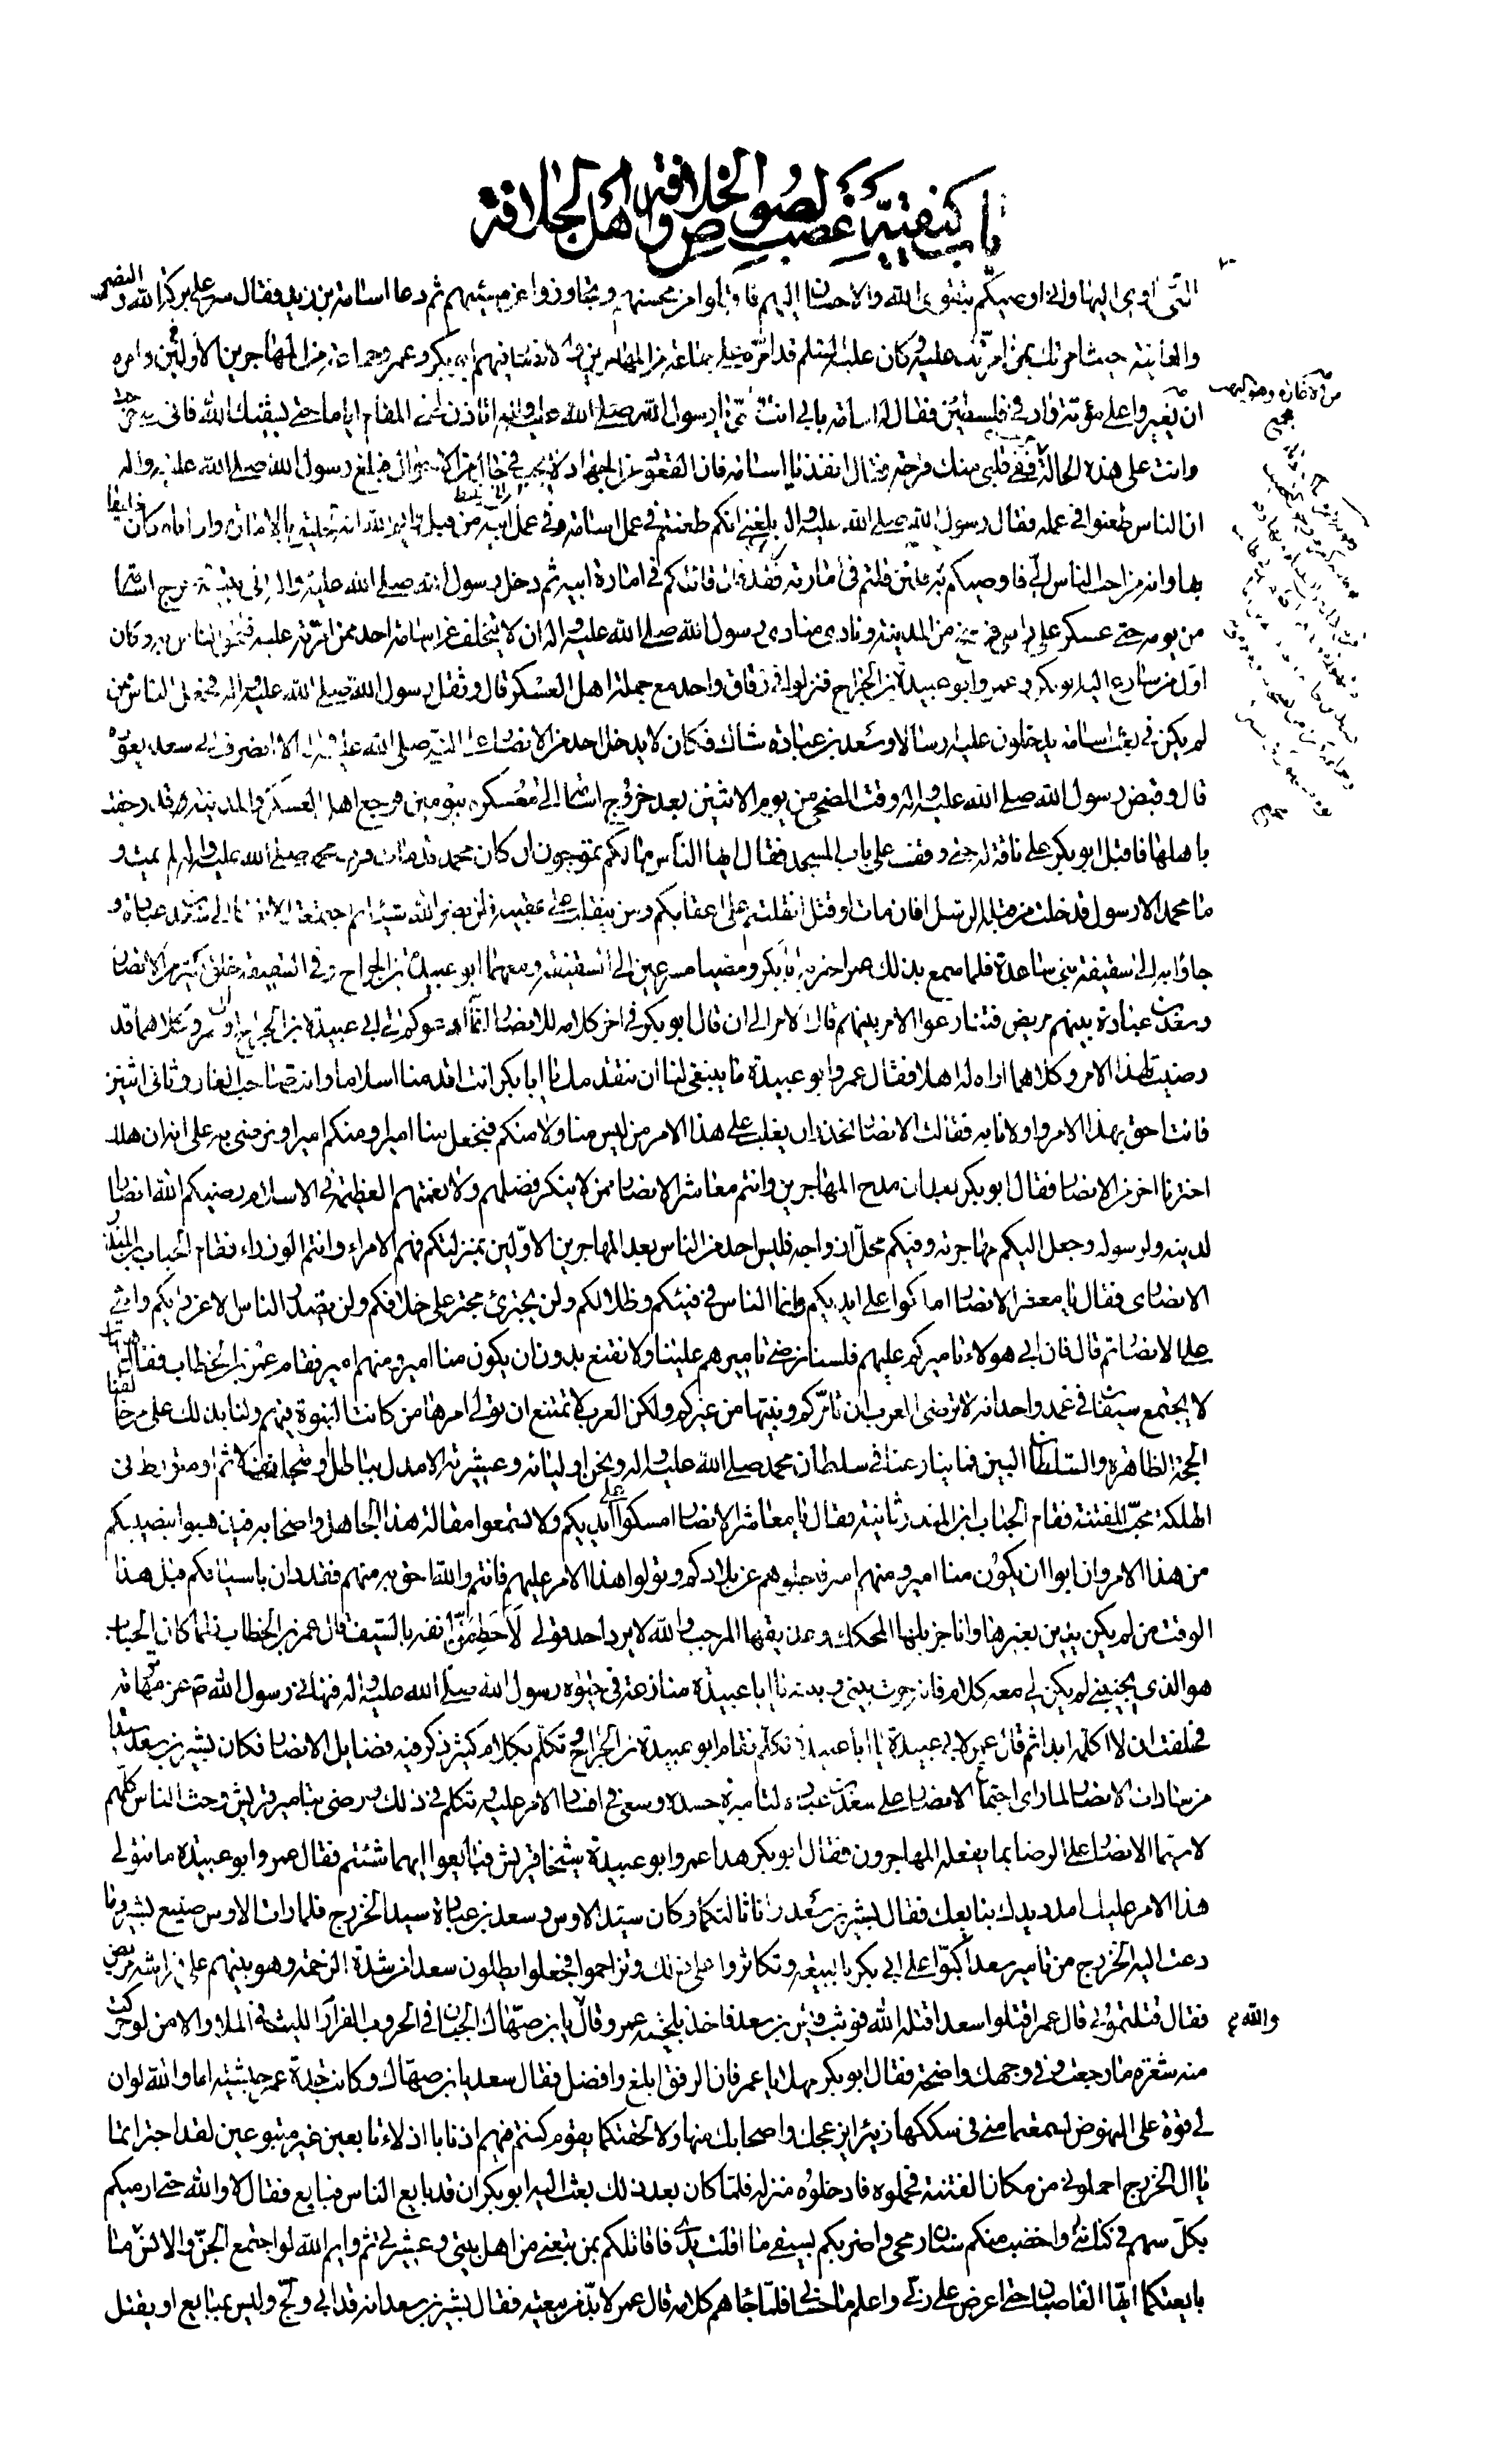 باب كيفية غصب لصوص الخلافة واهل الجلافة
التى اوى اليها وانى اوصيكم بتقوى الله والاحسان اليهم فاقبلوا من محسنهم وتجاوزوا عن مسيئهم ثم دعا اسامة بن زيد فقال سر على بركة الله والنصر
والعافية حيث امرتك بمن امرتك عليه وكان عليه السلم قد امره على جماعة من المهاجرين والانصار فيهم ابو بكر وعمر وجماعة من المهاجرين الاولين وامره
ان يغيروا على مؤتة واد فى فلسطين فقال له اسامة بابى انت وامى يا رسول الله صلى الله عليه واله اتاذن لى فى المقام اياما حتى يشفيك الله فانى متى خرجت
وانت على هذه الحالة خرجت وفى قلبى منك قرحة فقال انفذ يا اسامة فان القعود عن الجهاد لا يجب فى حال من الاحوال فبلغ رسول الله صلى الله عليه واله
ان الناس طعنوا فى عمله فقال رسول الله صلى الله عليه واله بلغنى انكم طعنتم فى عمل اسامة وفى عمل ابيه من قبل وايم الله انه لخليق بالامارة وان اباه كان خليقا
بها وانه من احب الناس الى فاوصيكم به خيرا فلئن قلتم فى امارته فقد قال قائلكم فى امارة ابيه ثم دخل رسول الله صلى الله عليه واله الى بيته وخرج اسامة
من يومه حتى عسكر على راس فرسخ من المدينة ونادى منادى رسول الله صلى الله عليه واله ان لا يتخلف عن اسامة احد ممن امرته عليه فلحق الناس به وكان
اول من سارع اليه ابو بكر وعمر وابو عبيدة بن الجراح فنزلوا فى زقاق واحد مع جملة اهل العسكر قال وثقل رسول الله صلى الله عليه واله فجعل الناس ممن
لم يكن فى بعث اسامة يدخلون عليه ارسالا وسعد بن عبادة شاك فكان لا يدخل احد من الانصار على النبى صلى الله عليه واله الا انصرف الى سعد يعوده
قال وقبض رسول الله صلى الله عليه واله وقت الضحى من يوم الاثنين بعد خروج اسامة الى معسكره بيومين فرجع اهل العسكر والمدينة قد رجفت
باهلها فاقبل ابو بكر على ناقة له حتى وقف على باب المسجد فقال ايها الناس ما لكم تموجون ان كان محمد قد مات فرب محمد صلى الله عليه واله لم يمت و
ما محمد الا رسول قد خلت من قبله الرسل افان مات او قتل انقلبتم على اعقابكم ومن ينقلب على عقبيه فلن يضر الله شيئا ثم اجتمعت الانصار الى سعد بن عبادة و
جاؤا به الى سقيفة بنى ساعدة فلما سمع بذلك عمر اخبر به ابا بكر ومضيا مسرعين الى السقيفة ومعهما ابو عبيدة بن الجراح وفى السقيفة خلق كثير من الانصار
وسعد بن عبادة بينهم مريض فتنازعوا الامر بينهم فال الامر الى ان قال ابو بكر فى اخر كلامه للانصار انما ادعوكم الى ابى عبيدة بن الجراح او عمر وكلاهما قد
رضيت لهذا الامر وكلاهما اراه له اهلا فقال عمر وابو عبيدة ما ينبغى لنا ان نتقدمك يا ابا بكر انت اقدمنا اسلاما وانت صاحب الغار وثانى اثنين
فانت احق بهذا الامر واولانا به فقالت الانصار نحذر ان يغلب على هذا الامر من ليس منا ولا منكم فنجعل منا اميرا ومنكم اميرا ونرضى به على انه ان هلك
اخترنا اخر من الانصار فقال ابو بكر بعد ان مدح المهاجرين وانتم معاشر الانصار ممن لا ينكر فضلهم ولا نعمتهم العظيمة فى الاسلام رضيكم الله انصارا
لدينه ولرسوله وجعل اليكم مهاجرته وفيكم محل ازواجه فليس احد من الناس بعد المهاجرين الاولين بمنزلتكم فهم الامراء وانتم الوزراء فقام الحباب بن المنذر
الانصارى فقال يا معشر الانصار املكوا على ايديكم وانما الناس فى فيئكم وظلالكم ولن يجترئ مجتر على خلافكم ولن يصدر الناس الا عن رايكم واثنى
على الانصار ثم قال فان ابى هولاء تاميركم عليهم فلسنا نرضى تاميرهم علينا ولا نقنع بدون ان يكون منا امير ومنهم امير فقام عمر بن الخطاب فقال هيهات
لا يجتمع سيفان فى غمد واحد انه لا ترضى العرب ان تامركم ونبيها من غيركم ولكن العرب لا تمتنع ان تولى امرها من كانت النبوة فيهم ولنا بذلك على من خالفنا
الحجة الظاهرة والسلطان البين فما ينازعنا فى سلطان محمد صلى الله عليه واله ونحن اولياؤه وعشيرته الا مدل بباطل او متجانف لاثم او متورط فى
الهلكة محب للفتنة فقام الحباب ابن المنذر ثانية فقال يا معاشر الانصار امسكوا على ايديكم ولا تسمعوا مقالة هذا الجاهل واصحابه فيذهبوا بنصيبكم
من هذا الامر وان ابوا ان يكون منا امير ومنهم امير فاجلوهم عن بلادكم وتولوا هذا الامر عليهم فانتم والله احق به منهم فقد دان باسيافكم قبل هذا
الوقت من لم يكن يدين بغيرها وانا جذيلها المحكك وعذيقها المرجب والله لا يرد احد قولى لاحطمن انفه بالسيف قال عمر بن الخطاب فلما كان الحباب
هو الذى يجيبنى لم يكن لى معه كلام فانه جرت بينى وبينه يا ابا عبيدة منازعة فى حيوة رسول الله صلى الله عليه واله فنهانى رسول الله ص عن مهاترته
فحلفت ان لا اكلمه ابدا ثم قال عمر لابى عبيدة يا ابا عبيدة تكلم فقام ابو عبيدة بن الجراح وتكلم بكلام كثير ذكر فيه فضايل الانصار فكان بشير بن سعد سيدا
من سادات الانصار لما راى اجتماع الانصار على سعد بن عبادة لتاميره حسده وسعى فى افساد الامر عليه وتكلم فى ذلك ورضى بتامير قريش وحث الناس كلهم
لا سيما الانصار على الرضا بما يفعله المهاجرون فقال ابو بكر هذا عمر وابو عبيدة شيخا قريش فبايعوا ايهما شئتم فقال عمر وابو عبيدة ما نتولى
هذا الامر عليك امدد يدك نبايعك فقال بشير بن سعد وانا ثالثكما وكان سيد الاوس وسعد بن عبادة سيد الخزرج فلما رات الاوس صنيع بشير وما
دعت اليه الخزرج من تامير سعد اكبوا على ابى بكر بالبيعة وتكاثروا على ذلك وتزاحموا فجعلوا يطئون سعدا من شدة الزحمة وهو بينهم على فراشه مريض
فقال قتلتمونى قال عمر اقتلوا سعدا قتله الله فوثب قيس بن سعد فاخذ بلحية عمر وقال والله يا بن صهاك الجبان فى الحروب الفرار الليث فى الملاء والامن لو حركت
منه شعرة ما رجعت وفى وجهك واضحة فقال ابو بكر مهلا يا عمر فان الرفق ابلغ وافضل فقال سعد يا بن صهاك وكانت جدة عمر حبشية اما والله لو ان
لى قوة على النهوض لسمعتما منى فى سككها زئيرا يزعجك واصحابك منها ولالحقتكما بقوم كنتم فيهم اذنابا اذلاء تابعين غير متبوعين لقد اجتراتما
يا ال الخزرج احملونى من مكان الفتنة فحملوه فادخلوه منزله فلما كان بعد ذلك بعث اليه ابو بكر ان قد بايع الناس فبايع فقال لا والله حتى ارميكم
بكل سهم فى كنانتى واخضب منكم سنان رمحى واضربكم بسيفى ما اقلت يدى فاقاتلكم بمن تبعنى من اهل بيتى وعشيرتى ثم وايم الله لو اجتمع الجن والانس ما
بايعتكما ايها الغاصبان حتى اعرض على ربى واعلم ما حسابى فلما جاءهم كلامه قال عمر لا بد من بيعته فقال بشير بن سعد انه قد ابى ولج وليس بمبايع او يقتل